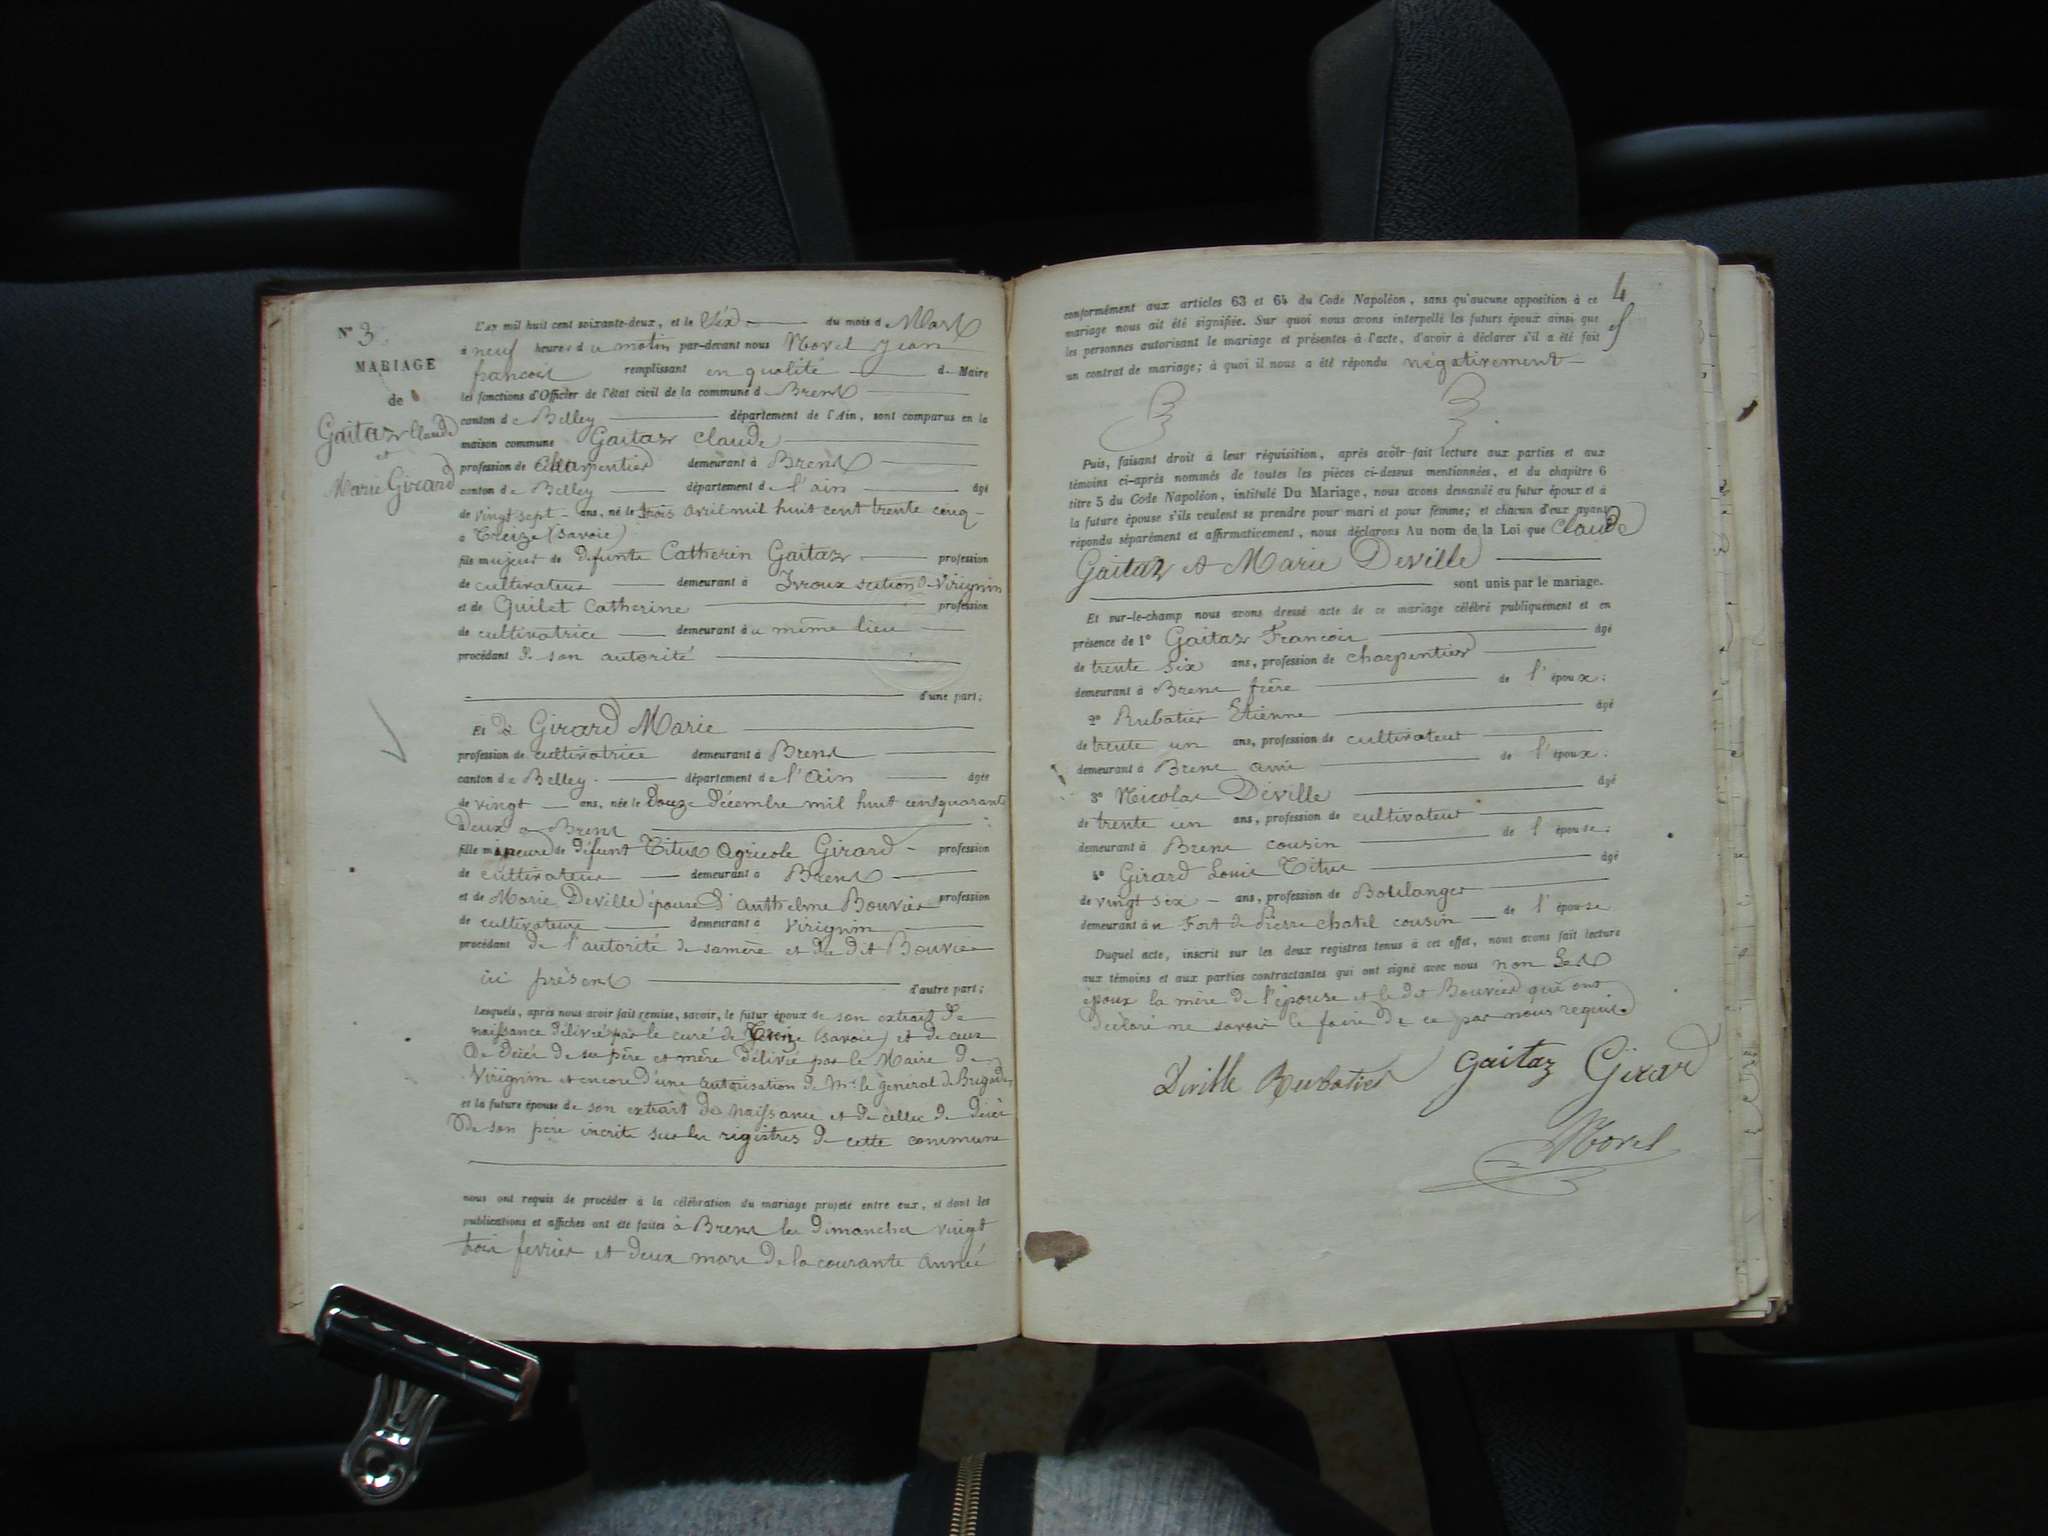 N° 3.
MARIAGE
de
Gaitaz Claude
et
Marie Girard
L'an mil huit cent soixante-deux, et le dix du mois de Mars
à neuf heures du matin par-devant nous Morel Jean
francois remplissant en qualité de Maire
les fonctions d'Officier de l'état civil de la commune d Brens
canton de Belley département de l'Ain, sont comparus en la
maison commune Gaitaz Claude
profession de Charpentier demeurant à Brens
canton de Belley département de l'ain âgé
de vingt sept ans, né le trois avril mil huit cent trente cinq
a (Savoie)
fils majeur de défunte Catherin Gaitaz profession
de cultivateur demeurant à Ivroux section de Virignin
et de Quilet Catherine profession
de cultivatrice demeurant au même lieu
procédant de son autorité
d'une part;
Et de Girard Marie
profession de cultivatrice demeurant à Brens
canton de Belley département de l'Ain âgée
de vingt ans, née le douze décembre mil huit cent quarante
deux a Brens
fille mineure de défunt Titus Agricole Girard profession
de cultivateur demeurant à Brens
et de Marie Deville épouse d'anthelme Bouvier profession
de cultivateurs demeurant à Virignin
procédant de l'autorité de sa mère et du dit Bouvier
ici présent
d'autre part;
Lesquels, après nous avoir fait remise, savoir, le futur époux de son extrait de
naissance délivré par le curé de (Savoie) et de ceux
de décés de ses père et mère délivré par le Maire de
Virignin et encore d'une autorisation de Mr le général de Brigade
et la future épouse de son extrait de naissance et de celle de décés
de son père incrite sur les régistres de cette commune
nous ont requis de procéder à la célébration du mariage projeté entre eux, et dont les
publications et affiches ont été faites à Brens les dimanches vingt
trois fevrier et deux mars de la courante année
4
conformément aux articles 63 et 64 du Code Napoléon, sans qu'aucune opposition à ce
mariage nous ait été signifiée. Sur quoi nous avons interpellé les futurs époux ainsi que
les personnes autorisant le mariage et présentes à l'acte, d'avoir à déclarer s'il a été fait
un contrat de mariage; à quoi il nous a été répondu négativement
Puis, faisant droit à leur réquisition, après avoir fait lecture aux parties et aux
témoins ci-après nommés de toutes les pièces ci-dessus mentionnées, et du chapitre 6
titre 5 du Code Napoléon, intitulé Du Mariage, nous avons demandé au futur époux et à
la future épouse s'ils veulent se prendre pour mari et pour femme; et chacun d'eux ayant
répondu séparément et affirmativement, nous déclarons Au nom de la Loi que Claude
Gaitaz et Marie Deville
sont unis par le mariage.
Et sur-le-champ nous avons dressé acte de ce mariage célébré publiquement et en
présence de 1° Gaitaz Francois âgé
de trente six ans, profession de charpentier
demeurant à Brens frère de l'époux;
2° Rubatier Etienne âgé
de trente un ans, profession de cultivateur
demeurant à Brens ami de l'époux;
3° Nicolas Deville âgé
de trente un ans, profession de cultivateur
demeurant à Brens cousin de l'épouse;
4° Girard Louis Titus âgé
de vingt six ans, profession de Boulanger
demeurant au Fort de Pierre chatel cousin de l'épouse
Duquel acte, inscrit sur les deux registres tenus à cet effet, nous avons fait lecture
aux témoins et aux parties contractantes qui ont signé avec nous non les
époux la mère de l'épouse et le dit Bouvier qui ont
déclaré ne savoir le faire de ce par nous requis
Deville Rubatier Gaitaz Girard
Morel